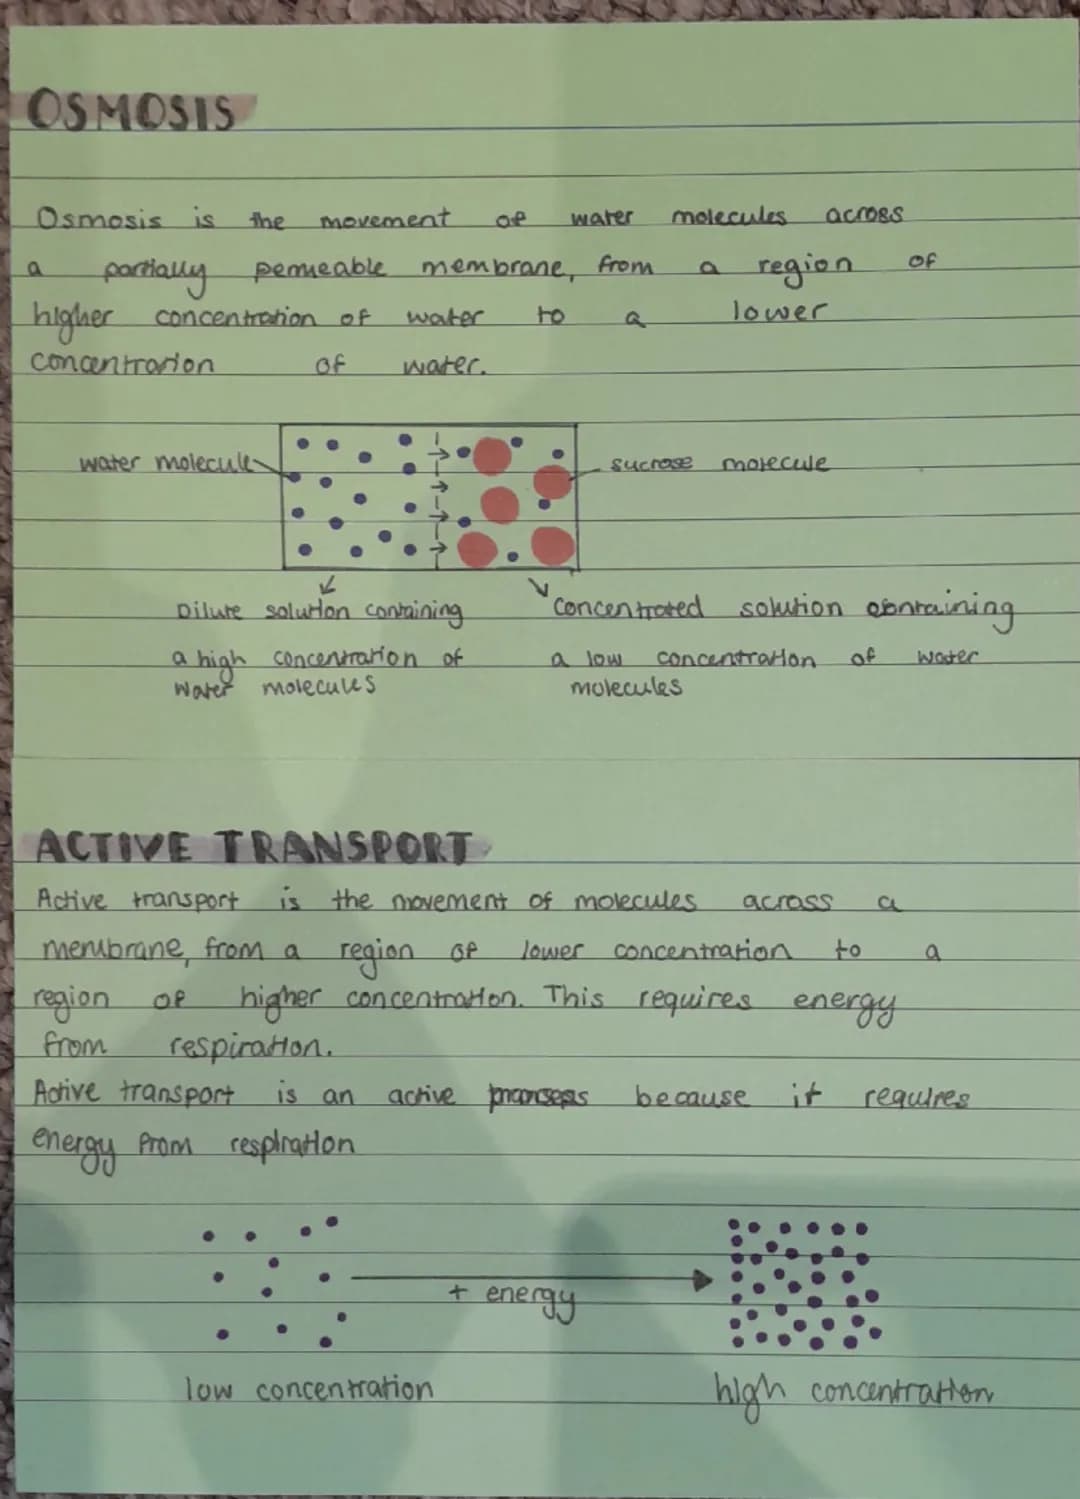 OSMOSIS
Osmosis is the movement of water molecules across
a partially permeable membrane, from a region of
higher concentration of water to a lower
concentration of water.
water molecule
sucrose molecule
Dilute solution containing
a high concentration of
water molecules
Concentrated solution containing
a low concentration of water
molecules
ACTIVE TRANSPORT
Active transport is the movement of molecules across a
membrane, from a region of lower concentration to a
region of higher concentration. This requires energy
from respiration.
Active transport is an active because it requires
energy from respiration
+ energy
low concentration
high concentration